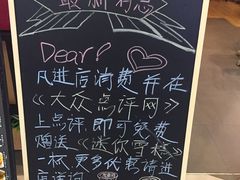 最新消息
Dear?
凡进店消费并在
《大众点评网》
上点评,即可免费
赠送《迷你雪糕》
一杯,更多优惠请进
店详询